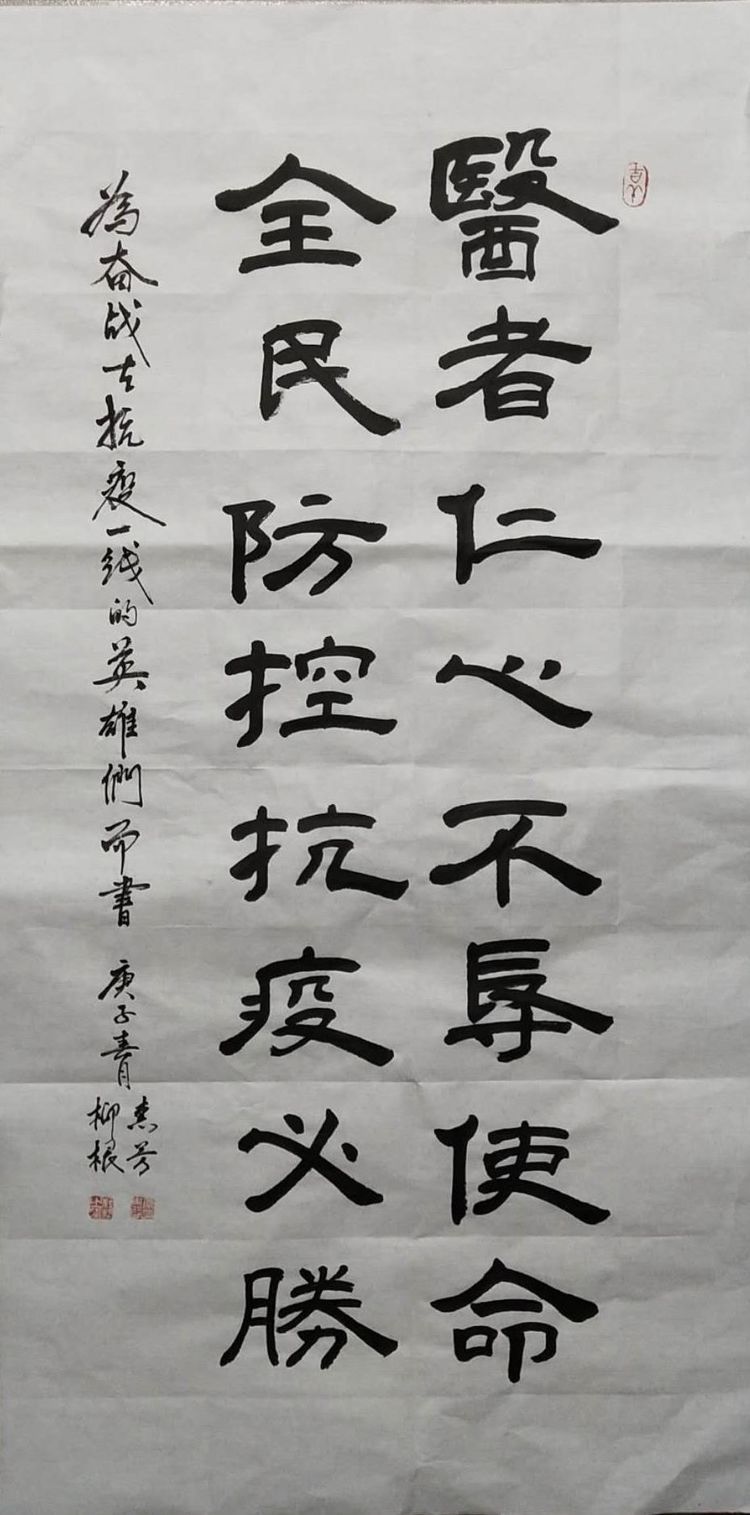 醫者仁心不辱使命
全民防控抗疫必勝
為奋战在抗疫一线的英雄們而書 庚子春月
柳根